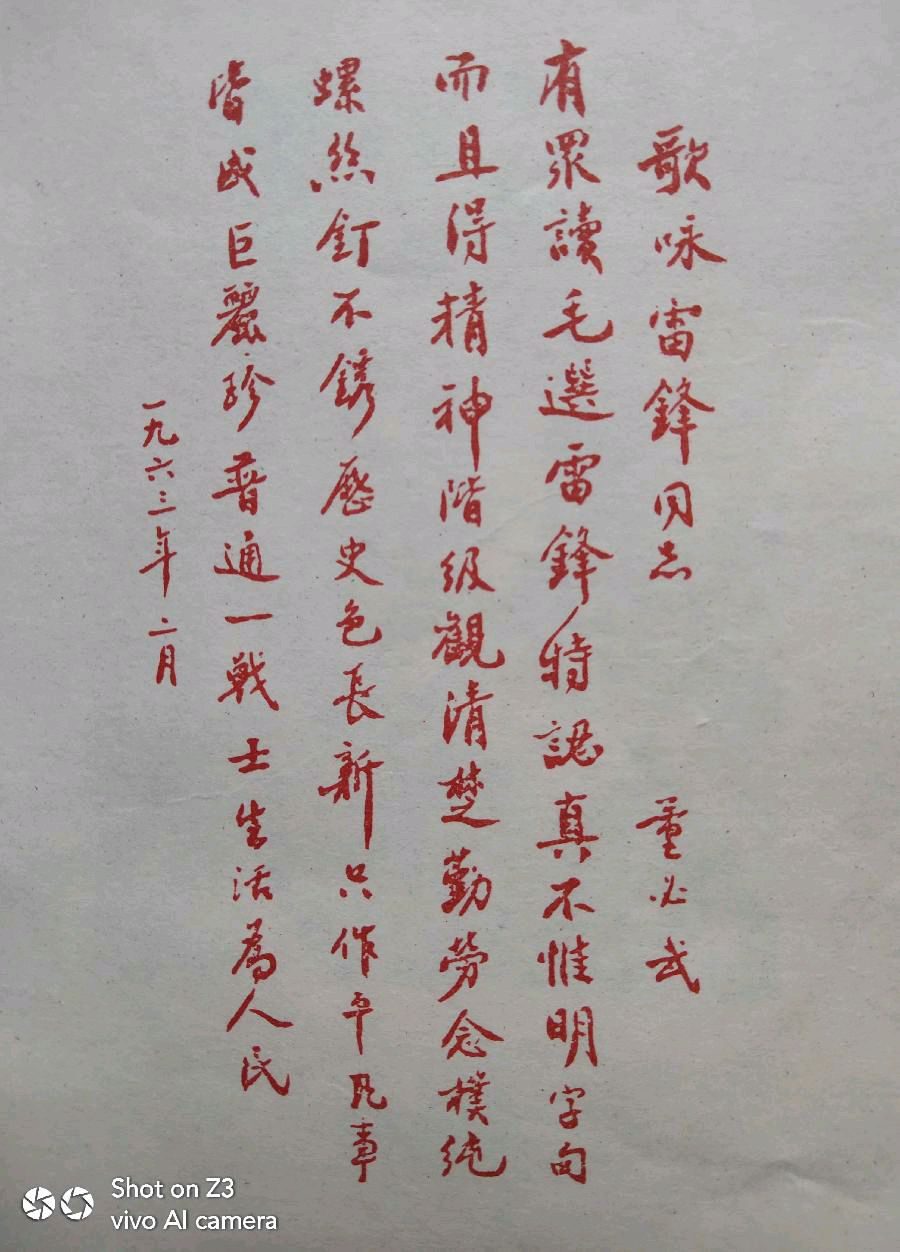 歌咏雷鋒同志 董必武
有眾讀毛選雷鋒特認真不惟明字句
而且得精神階級觀清楚勤勞念樸純
螺絲釘不銹歷史色長新只作平凡事
皆成巨麗珍普通一戰士生活爲人民
一九六三年二月
Shot on Z3
vivo AI camera